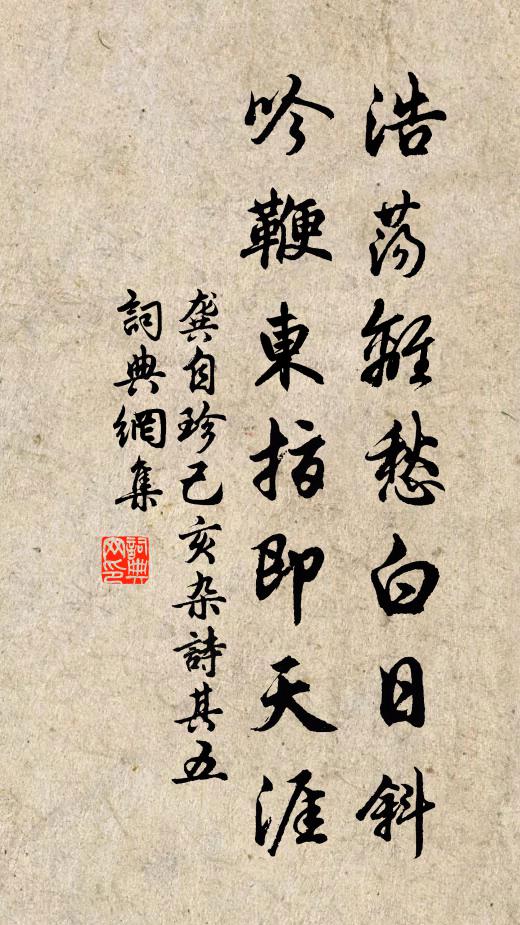 浩蕩離愁白日斜
吟鞭東指即天涯
龔自珍己亥杂詩其五
詞典網集
詞典网印